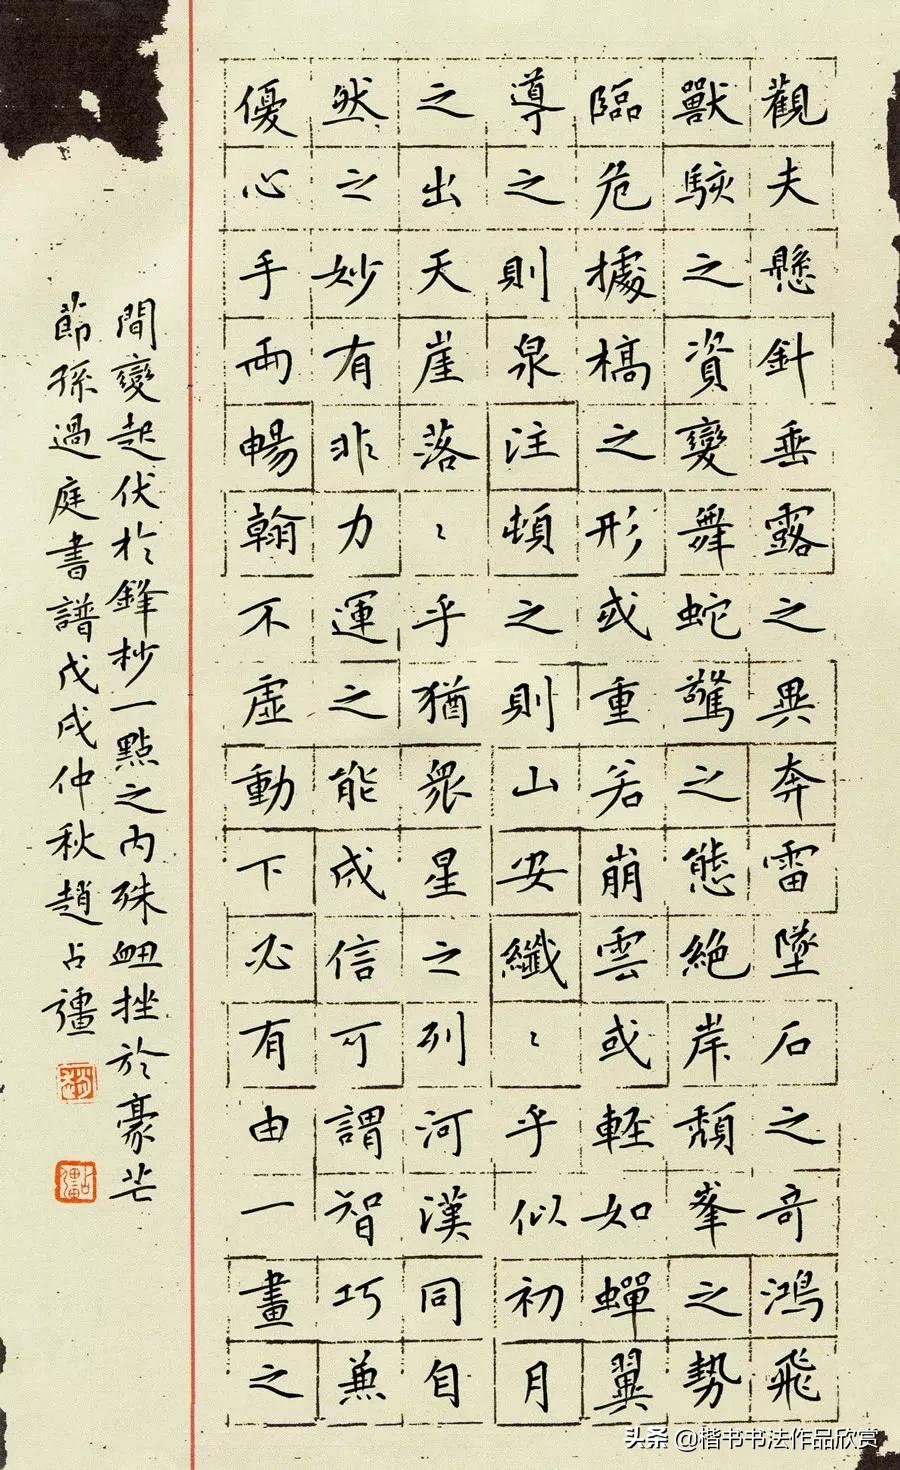 觀夫懸針垂露之異奔雷墜石之奇鴻飛
獸駭之資變舞蛇驚之態絕岸頹峯之勢
臨危據槁之形或重若崩雲或輕如蟬翼
導之則泉注頓之則山安纖〻乎似初月
之出天崖落〻乎猶眾星之列河漢同自
然之妙有非力運之能成信可謂智巧兼
優心手兩暢翰不虛動下必有由一畫之
間變起伏於鋒杪一點之內殊衄挫於豪芒
節孫過庭書譜戊戌仲秋趙占疆
头条 @楷书书法作品欣赏